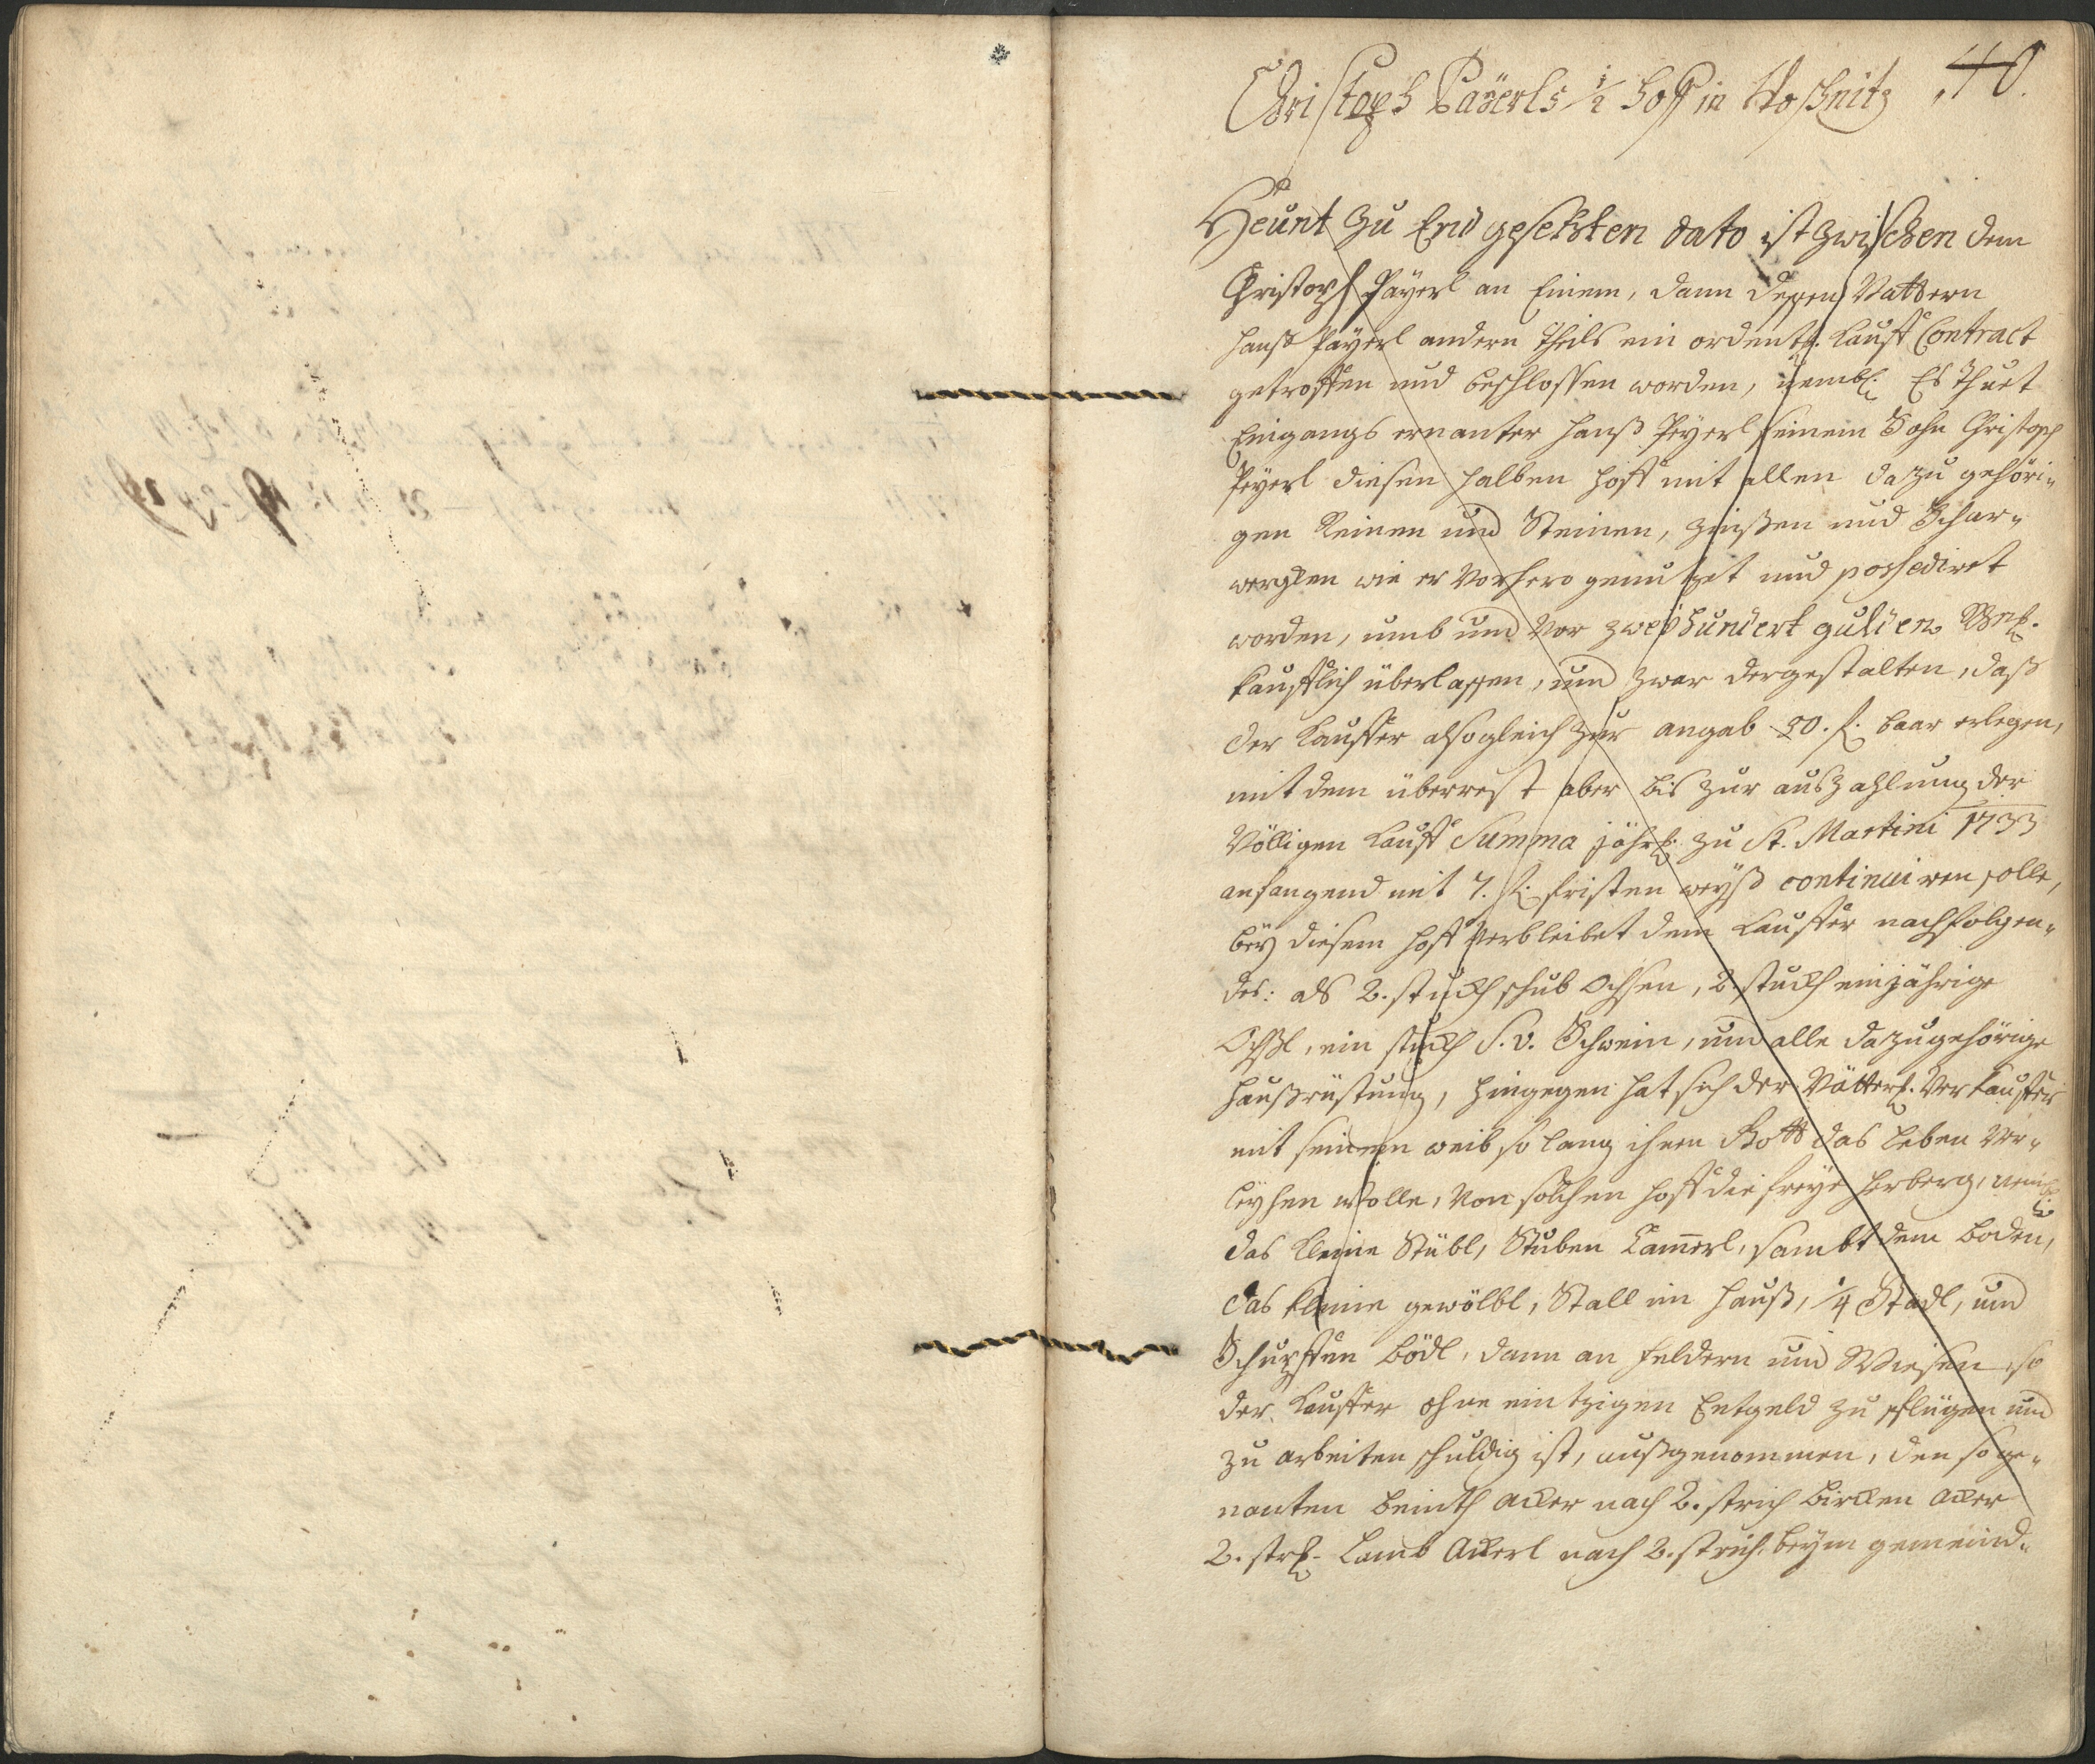 40.
Christoph Päÿerls 1/2 Hoff in Woschnitz
Heunt zu End gesetzten dato ist zwischen dem
Christoph Päyerl an Einem, dann dessen Vattern
Hanß Päyerl andern Theils ein ordentl. Kauff Contract
getroffen und beschlossen worden, nembl. Es thuet
Eingangs ernanter Hanß Peyerl seinem Sohn Christoph
Peyerl diesen halben Hoff mit allen dazu gehöri-
gen Reinen und Steinen, Zinßen und Schar-
wergken wie er Vorhero genutzet und possediret
worden, umb und Vor zweÿhundert gulden
kaufflich überlassen, und zwar dergestalten, daß
der Kauffer alsogleich zur angab 30. f. baar erlegen,
mit dem überrest aber bis zur auszahlung der
Völligen Kauff Summa jährl. zu St. Martini 1733
anfangend mit 7. f. fristen weyß continuiren solle,
beÿ diesem Hoff Verbleibet dem Kauffer nachfolgen-
des: als 2. stuckh schub Ochsen, 2. stuckh einjährige
Öchßl, ein stuckh S. v. Schwein, und alle dazugehörige
Haußrüstung, hingegen hat sich der Vätterl. Verkauffer
mit seinem weib so lang ihnen Gott das Leben Ver-
leyhen wolle, Von solchen Hoff die freÿe Herberg, nembl.
das kleine Stübl, Stuben Kammerl, sambt dem Boden,
das kleine gewölbl, Stall im Hauß, 1/4 Stadl, und
Schupffen Bödl, dann an Feldern und Wiesen, so
der Kauffer ohne eintzigen Entgeld zu pflügen und
zu arbeiten schuldig ist, außgenommen, den soge-
nanten Beinth Acker nach 2. strich Bircken Acker
2. strh. Lamb Ackerl nach 2. strich beÿm gemeind-